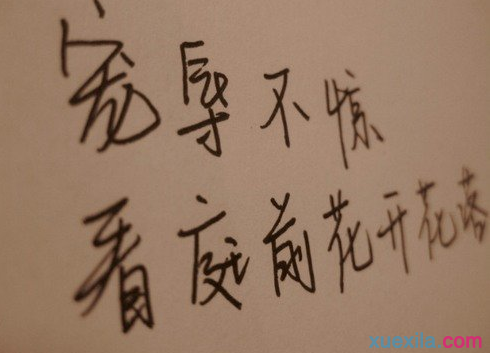 宠辱不惊
看庭前花开花落
xuexila.com